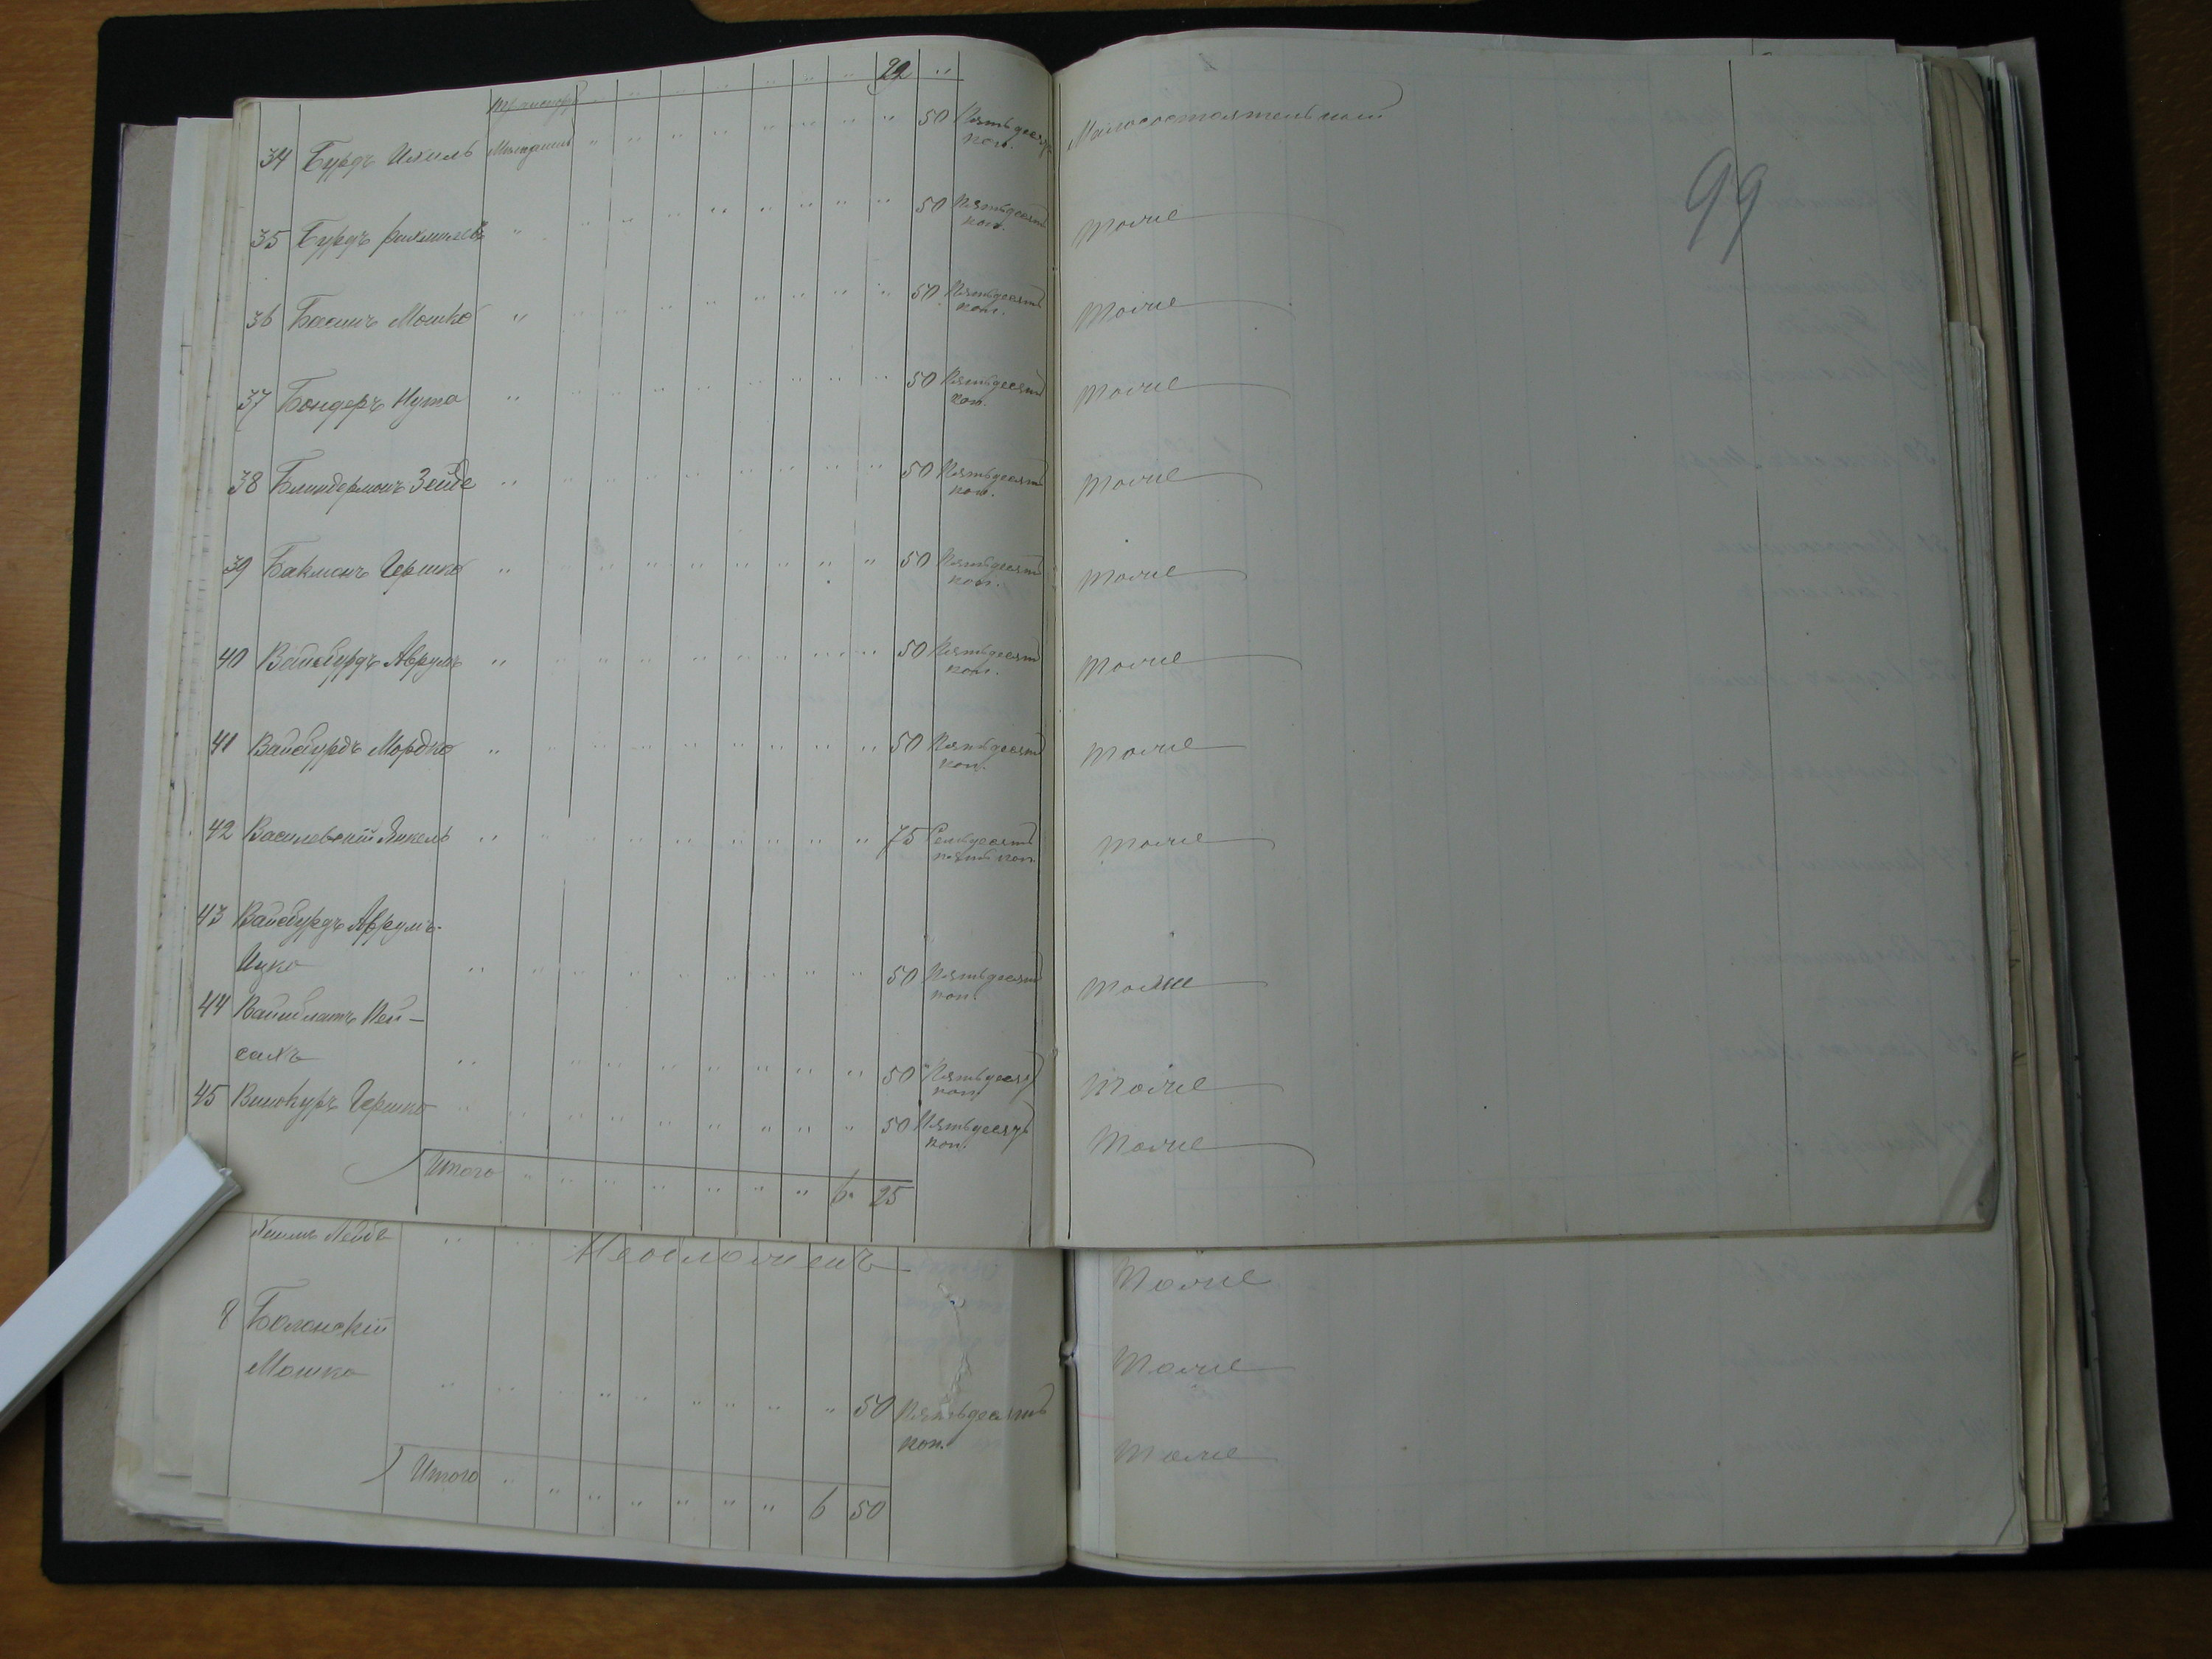 22 "
34 Бурдъ Ихиль 50 Пятьдесят коп. Малосостоятельный
35 Бурдъ Рахмилевъ " 50 Пятьдесятъ коп. Тоже
36 Басинъ Мошко " 50 Пятьдесятъ коп. Тоже
37 Бондеръ Нута " 50 Пятьдесятъ коп. Тоже
38 Блиндерманъ Зейде " 50 Пятьдесятъ коп. Тоже
39 Бакманъ Гершко " 50 Пятьдесятъ коп. Тоже
40 Вайсбурдъ Аврумъ " 50 Пятьдесятъ коп. Тоже
41 Вайсбурдъ Мордко " 50 Пятьдесятъ коп. Тоже
42 Василевскій Янкель " 75 Семьдесятъ пять коп. Тоже
43 Вайсбурдъ Аврумъ-
Ицко " 50 Пятьдесятъ коп. Тоже
44 Вайсблатъ Пей-
сахъ " 50 Пятьдесят коп. Тоже
45 Винокуръ Гершко " 50 Пятьдесятъ коп. Тоже
Итого " 6 25
99
Хаимъ Лейбъ " Необложенъ Тоже
8 Баланскій
Мошко Тоже
" 50 Пятьдесятъ коп. Тоже
Итого " 6 50